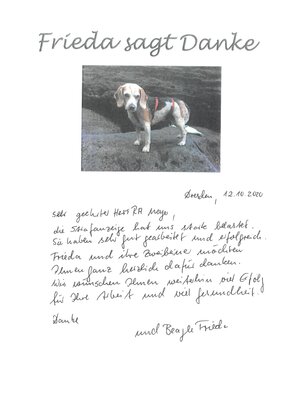 Frieda sagt Danke
Dresden, 12.10.2020
Sehr geehrter Herr RA
die Strafanzeige hat uns stark belastet.
Sie haben sehr gut gearbeitet und erfolgreich
Frieda und ihre Zweibeiner möchten
Ihnen ganz herzlich dafür danken.
Wir wünschen Ihnen weiterhin viel Erfolg
für Ihre Arbeit und viel Gesundheit.
Danke
und Beagle Frieda